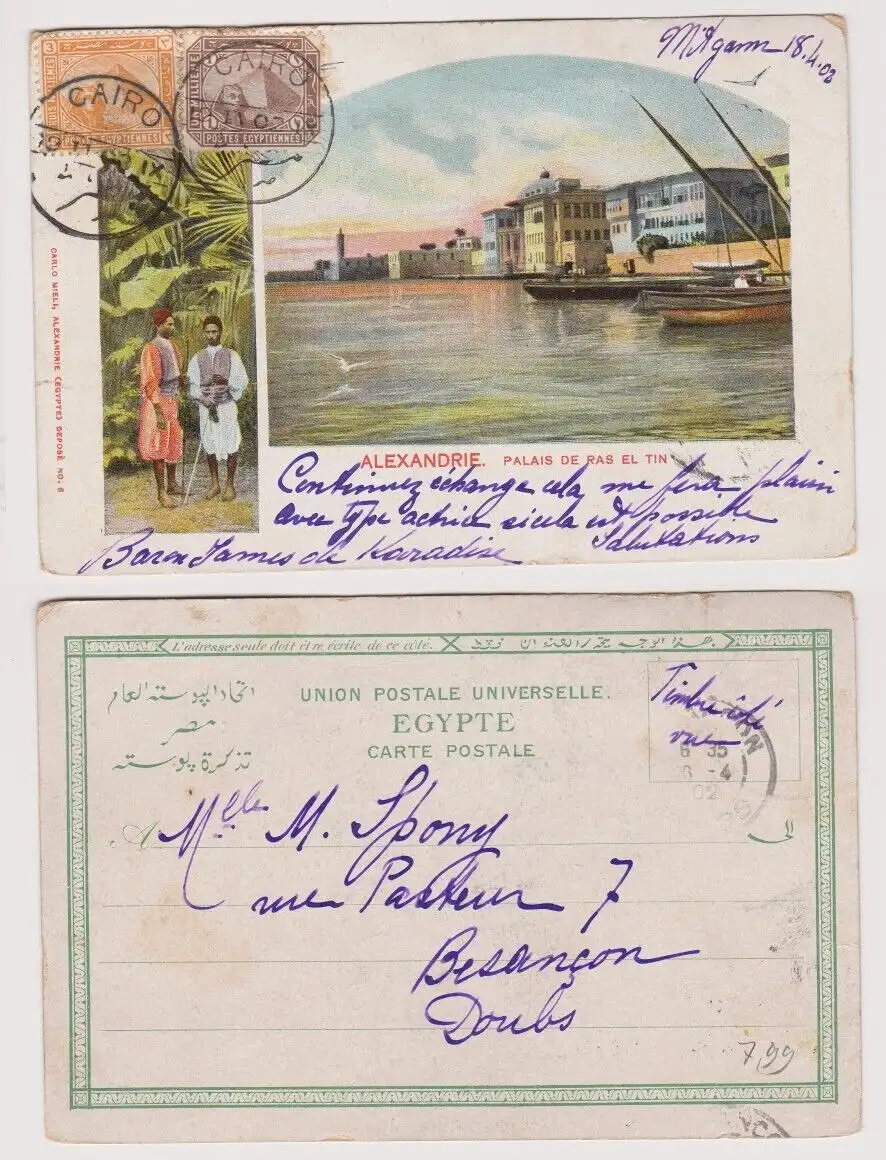 3
CAIRO
UN MILLIEME
POSTES EGYPTIENNES
CAIRO
IV 02
18.4.02
CARLO MIELI, ALEXANDRIE (EGYPTE) DEPOSÉ NO. 6
ALEXANDRIE. PALAIS DE RAS EL TIN
Continuez échange cela me fera plaisir
avec type si cela est possible
Salutations
Baron James de Karadise
L'adresse seule doit être écrite de ce côté.
اتحاد البوسته العام
مصر
تذكرة بوسته
UNION POSTALE UNIVERSELLE.
EGYPTE
CARTE POSTALE
Timbre côté
vue
6 35
-4
02
A Mlle M. Spony
الى
rue Pasteur 7
Besançon
Doubs
7,99